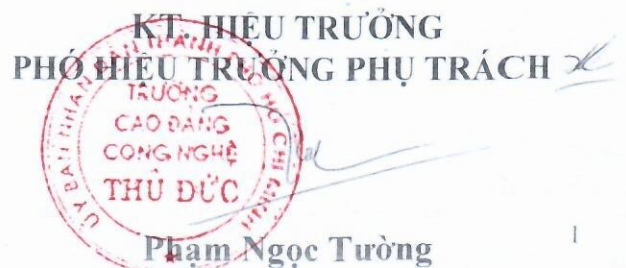 KT. HIỆU TRƯỞNG
PHÓ HIỆU TRƯỞNG PHỤ TRÁCH
ỦY BAN NHÂN DÂN THÀNH PHỐ HỒ CHÍ MINH
TRƯỜNG
CAO ĐẲNG
CÔNG NGHỆ
THỦ ĐỨC
Phạm Ngọc Tường
1